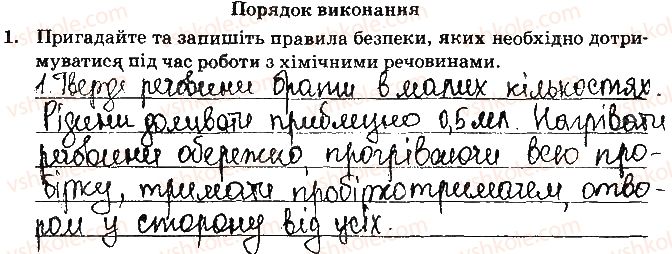 Порядок виконання
1. Пригадайте та запишіть правила безпеки, яких необхідно дотри-
муватися під час роботи з хімічними речовинами.
1. Тверді речовини брати в малих кількостях.
Рідини доливати приблизно 0,5 мл. Нагрівати
речовини обережно, прогріваючи всю про-
бірку, тримати пробіркотримачем, отво-
ром у сторону від усіх.